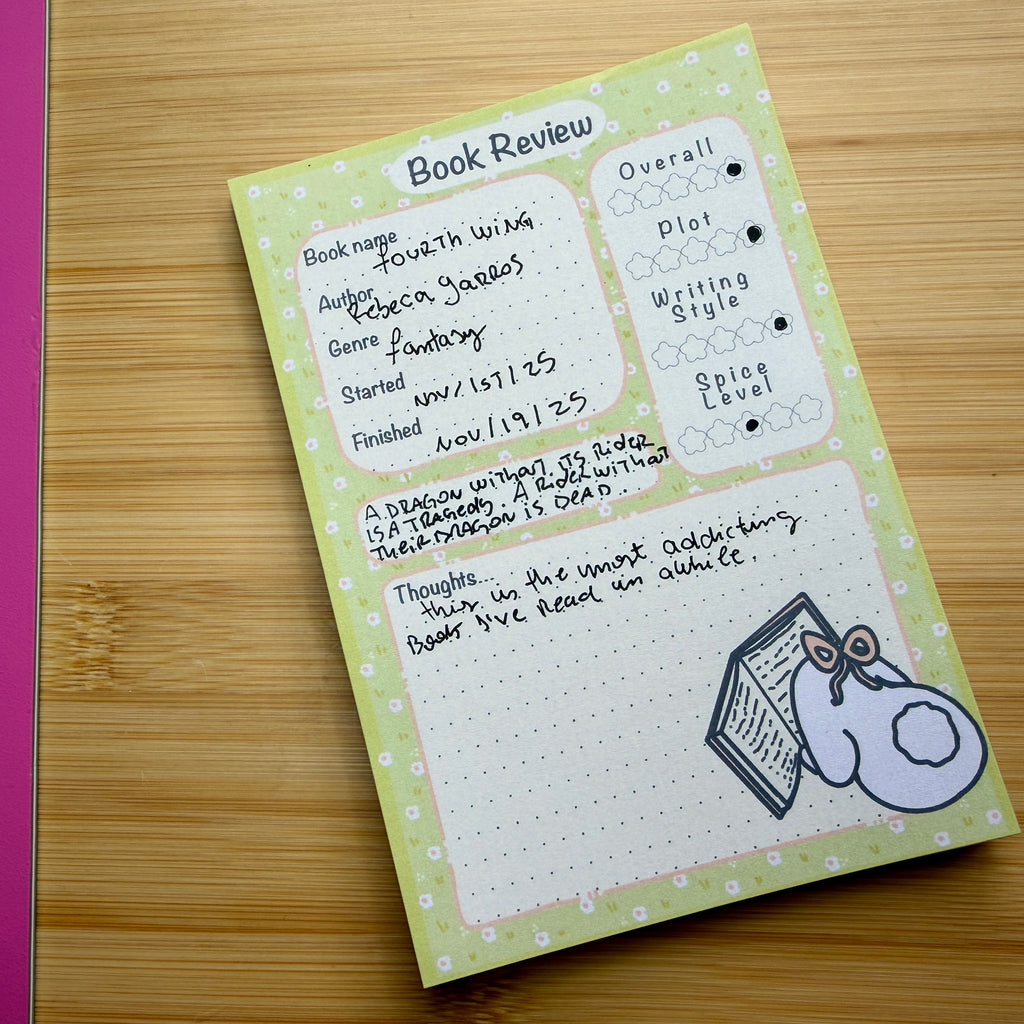 Book Review
Book name fourth wing
Author Rebeca Garros
Genre fantasy
Started NOV/1ST/25
Finished NOV/19/25
Overall
Plot
Writing
Style
Spice
Level
A DRAGON without ITS RiDER
IS A TRAGEDY. A RiDER WiTHOUT
THEiR DRAGON iS DEAD.
Thoughts...
this is the most addicting
Book I've Read in awhile.